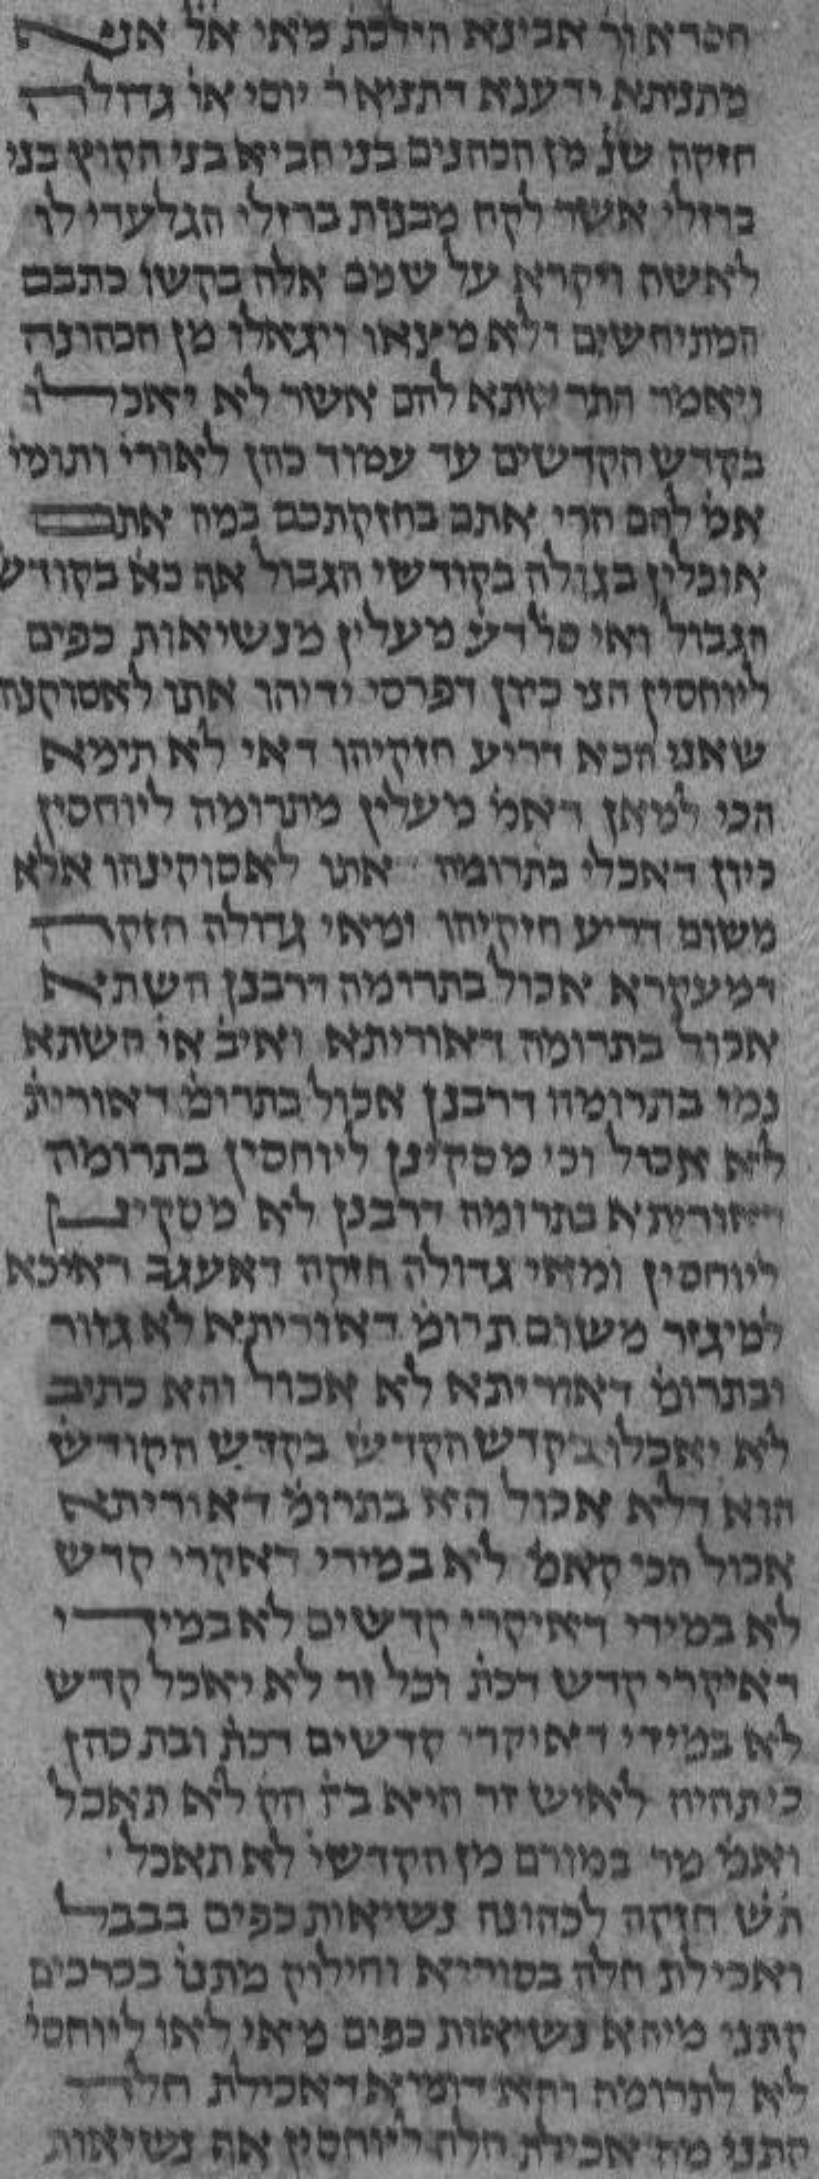 חסדא ור אבינא הילכת מאי אל אנא
מתניתא ידענא דתניא ר יוסי או גדולה
חזקה שנ מן הכהנים בני חביא בני הקוץ בני
ברזלי אשר לקח מבנות ברזלי הגלעדי לו
לאשה ויקרא על שמם אלה בקשו כתבם
המתיחשים ולא מיצאו ויגאלו מן הכהונה
ויאמר התרשתא להם אשר לא יאכלו
בקדש הקדשים עד עמוד כהן לאורי ותומי
אמ להם הרי אתם בחזקתכם במה אתם
אוכלין בגולה בקודשי הגבול אף כא בקודש
הגבול ואי סלדע מעלין מנשיאות כפים
ליוחסין הני כיון דפרסי ידיהו אתו לאסוקנה
שאני הכא דריע חזקיהו דאי לא תימא
הכי למאן דאמ מעלין מתרומה ליוחסין
כיון דאכלי בתרומה אתו לאסוקינהו אלא
משום דריע חזקיהו ומאי גדולה חזקה
דמעקרא אכול בתרומה דרבנן השתא
אכול בתרומה דאוריתא ואיב או השתא
נמי בתרומה דרבנן אכול בתרומ דאורית
לא אכול וכי מסקינן ליוחסין בתרומה
דאוריתא בתרומה דרבנן לא מסקינן
ליוחסין ומאי גדולה חזקה דאעגב דאיכא
למיגזר משום תרומ דאוריתא לא גזור
ובתרומ דאוריתא לא אכול והא כתיב
לא יאכלו בקדש הקדש בקדש הקודש
הוא דלא אכול הא בתרומ דאוריתא
אכול הכי קאמ לא במידי דאקרי קדש
לא במידי דאיקרי קדשים לא במידי
דאיקרי קדש דכת וכל זר לא יאכל קדש
לא במידי דאיקרי קדשים דכת ובת כהן
כי תהיה לאיש זר היא בת הק לא תאכל
ואמ מר במורם מן הקדשי לא תאכל
תש חזקה לכהונה נשיאות כפים בבבל
ואכילת חלה בסוריא וחילוק מתנו בכרכים
קתני מיהא נשיאות כפים מאי לאו ליוחסי
לא לתרומה והא דומיא דאכילת חלה
קתני מה אכילת חלה ליוחסין אף נשיאות